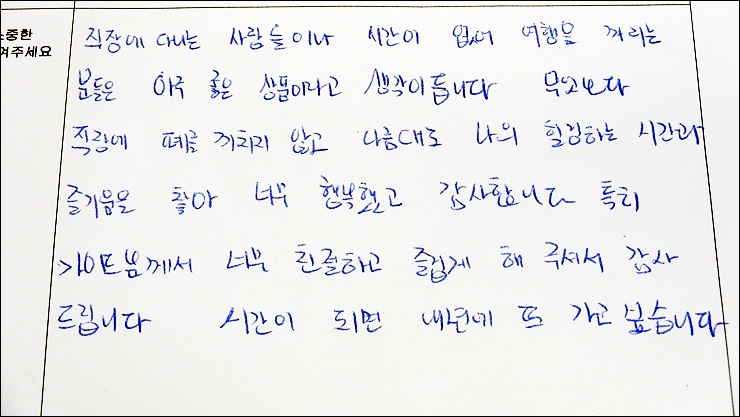 소중한
여주세요
직장에 다니는 사람들이나 시간이 없어 여행을 꺼리는
분들은 아주 좋은 상품이라고 생각이듭니다 무엇보다
직장에 폐를 끼치지 않고 나름대로 나의 힐링하는 시간과
즐거움을 찾아 너무 행복했고 감사합니다 특히
가이드분께서 너무 친절하고 즐겁게 해 주셔서 감사
드립니다 시간이 되면 내년에 또 가고 싶습니다